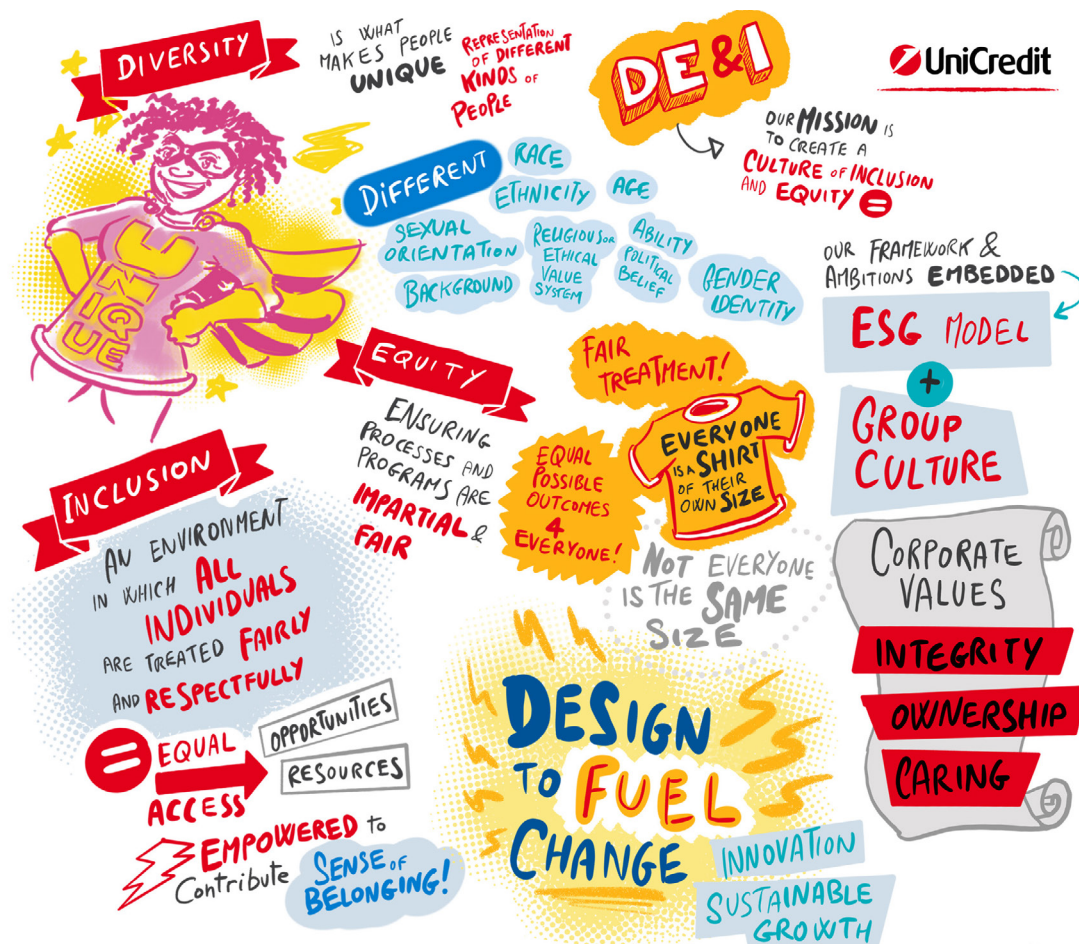 DIVERSITY
IS WHAT
MAKES PEOPLE
UNIQUE
REPRESENTATION
OF DIFFERENT
KINDS OF
PEOPLE
DE&I
UniCredit
OUR MISSION IS
TO CREATE A
CULTURE OF INCLUSION
AND EQUITY =
DIFFERENT
RACE
ETHNICITY
AGE
SEXUAL
ORIENTATION
RELIGIOUS OR
ETHICAL
VALUE
SYSTEM
ABILITY
POLITICAL
BELIEF
BACKGROUND
GENDER
IDENTITY
UNIQUE
OUR FRAMEWORK &
AMBITIONS EMBEDDED
ESG MODEL
+
GROUP
CULTURE
EQUITY
ENSURING
PROCESSES AND
PROGRAMS ARE
IMPARTIAL &
FAIR
FAIR
TREATMENT!
EQUAL
POSSIBLE
OUTCOMES
4
EVERYONE!
EVERYONE
IS A SHIRT
OF THEIR
OWN SIZE
NOT EVERYONE
IS THE SAME
SIZE
INCLUSION
AN ENVIRONMENT
IN WHICH ALL
INDIVIDUALS
ARE TREATED FAIRLY
AND RESPECTFULLY
= EQUAL
ACCESS
OPPORTUNITIES
RESOURCES
EMPOWERED to
Contribute
SENSE OF
BELONGING!
DESIGN
TO FUEL
CHANGE
INNOVATION
SUSTAINABLE
GROWTH
CORPORATE
VALUES
INTEGRITY
OWNERSHIP
CARING